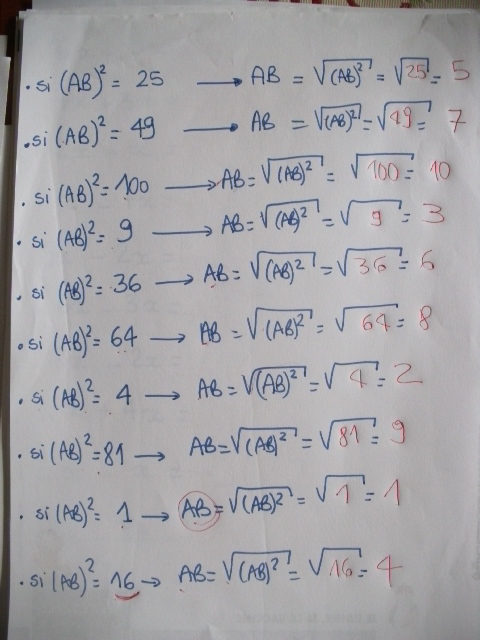 . si (AB)² = 25 → AB = √(AB)² = √25 = 5
. si (AB)² = 49 → AB = √(AB)² = √49 = 7
. si (AB)² = 100 → AB = √(AB)² = √100 = 10
. si (AB)² = 9 → AB = √(AB)² = √9 = 3
. si (AB)² = 36 → AB = √(AB)² = √36 = 6
. si (AB)² = 64 → AB = √(AB)² = √64 = 8
. si (AB)² = 4 → AB = √(AB)² = √4 = 2
. si (AB)² = 81 → AB = √(AB)² = √81 = 9
. si (AB)² = 1 → AB = √(AB)² = √1 = 1
. si (AB)² = 16 → AB = √(AB)² = √16 = 4